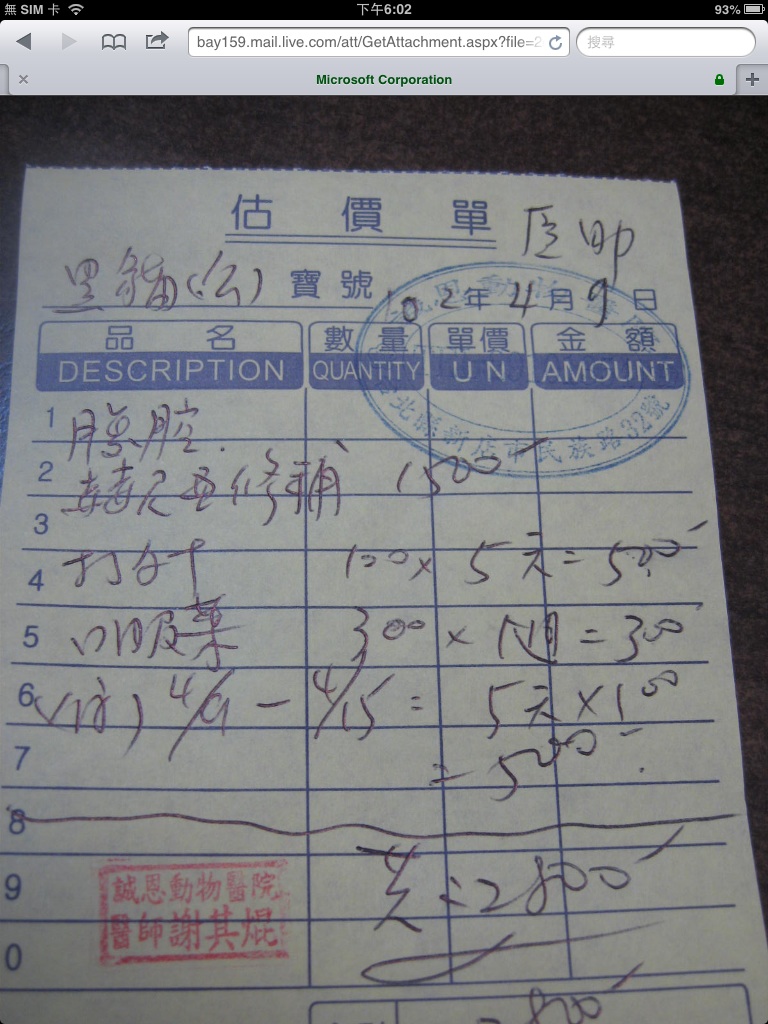 無 SIM 卡 下午6:02 93%
bay159.mail.live.com/att/GetAttachment.aspx?file=2 搜尋
Microsoft Corporation
估價單
黑貓(公) 寶號 102年4月9日
品名 數量 單價 金額
DESCRIPTION QUANTITY U N AMOUNT
台北縣新店市民族路32號
1 腹腔.
2 修補 1500
3
4 打針 100× 5天=500
5 口服藥 300 × 1週=300
6 4/9-4/15= 5天×100
7 =500
8
9 共=2800
0
誠恩動物醫院
醫師謝其焜
2800